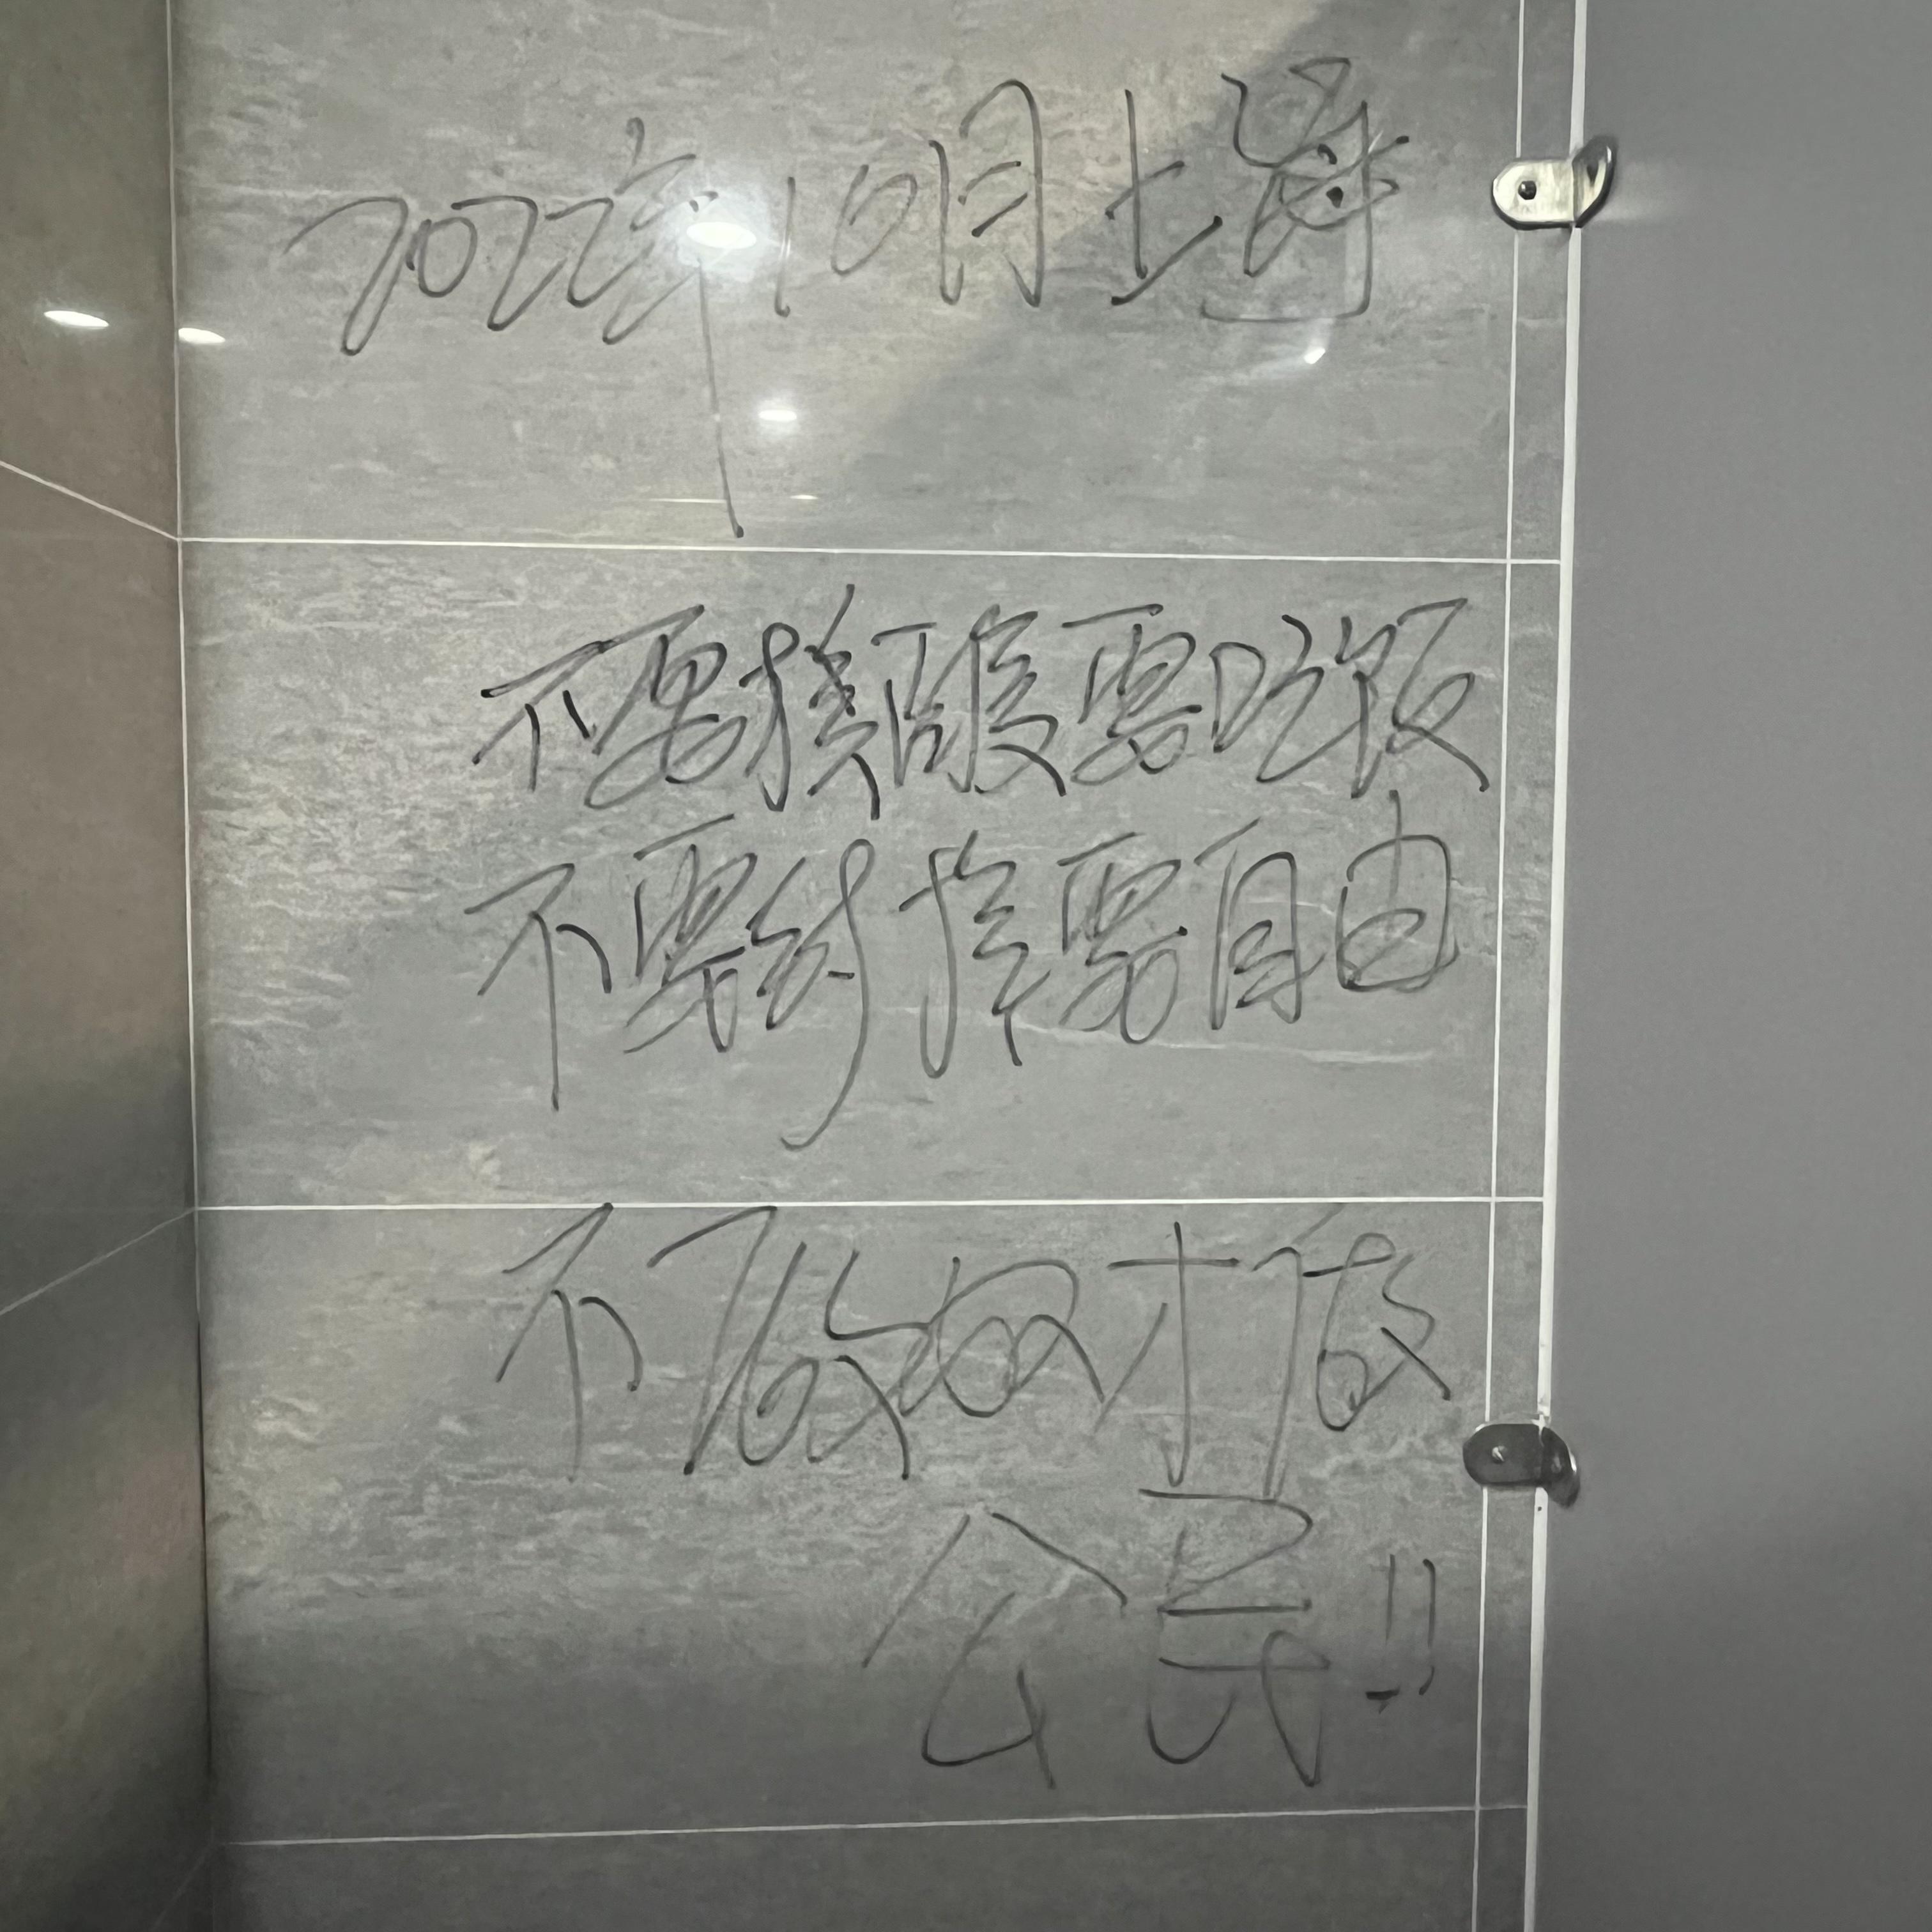 2022年10月上海
不要核酸要吃饭
不要封控要自由
不做奴才做
公民!!